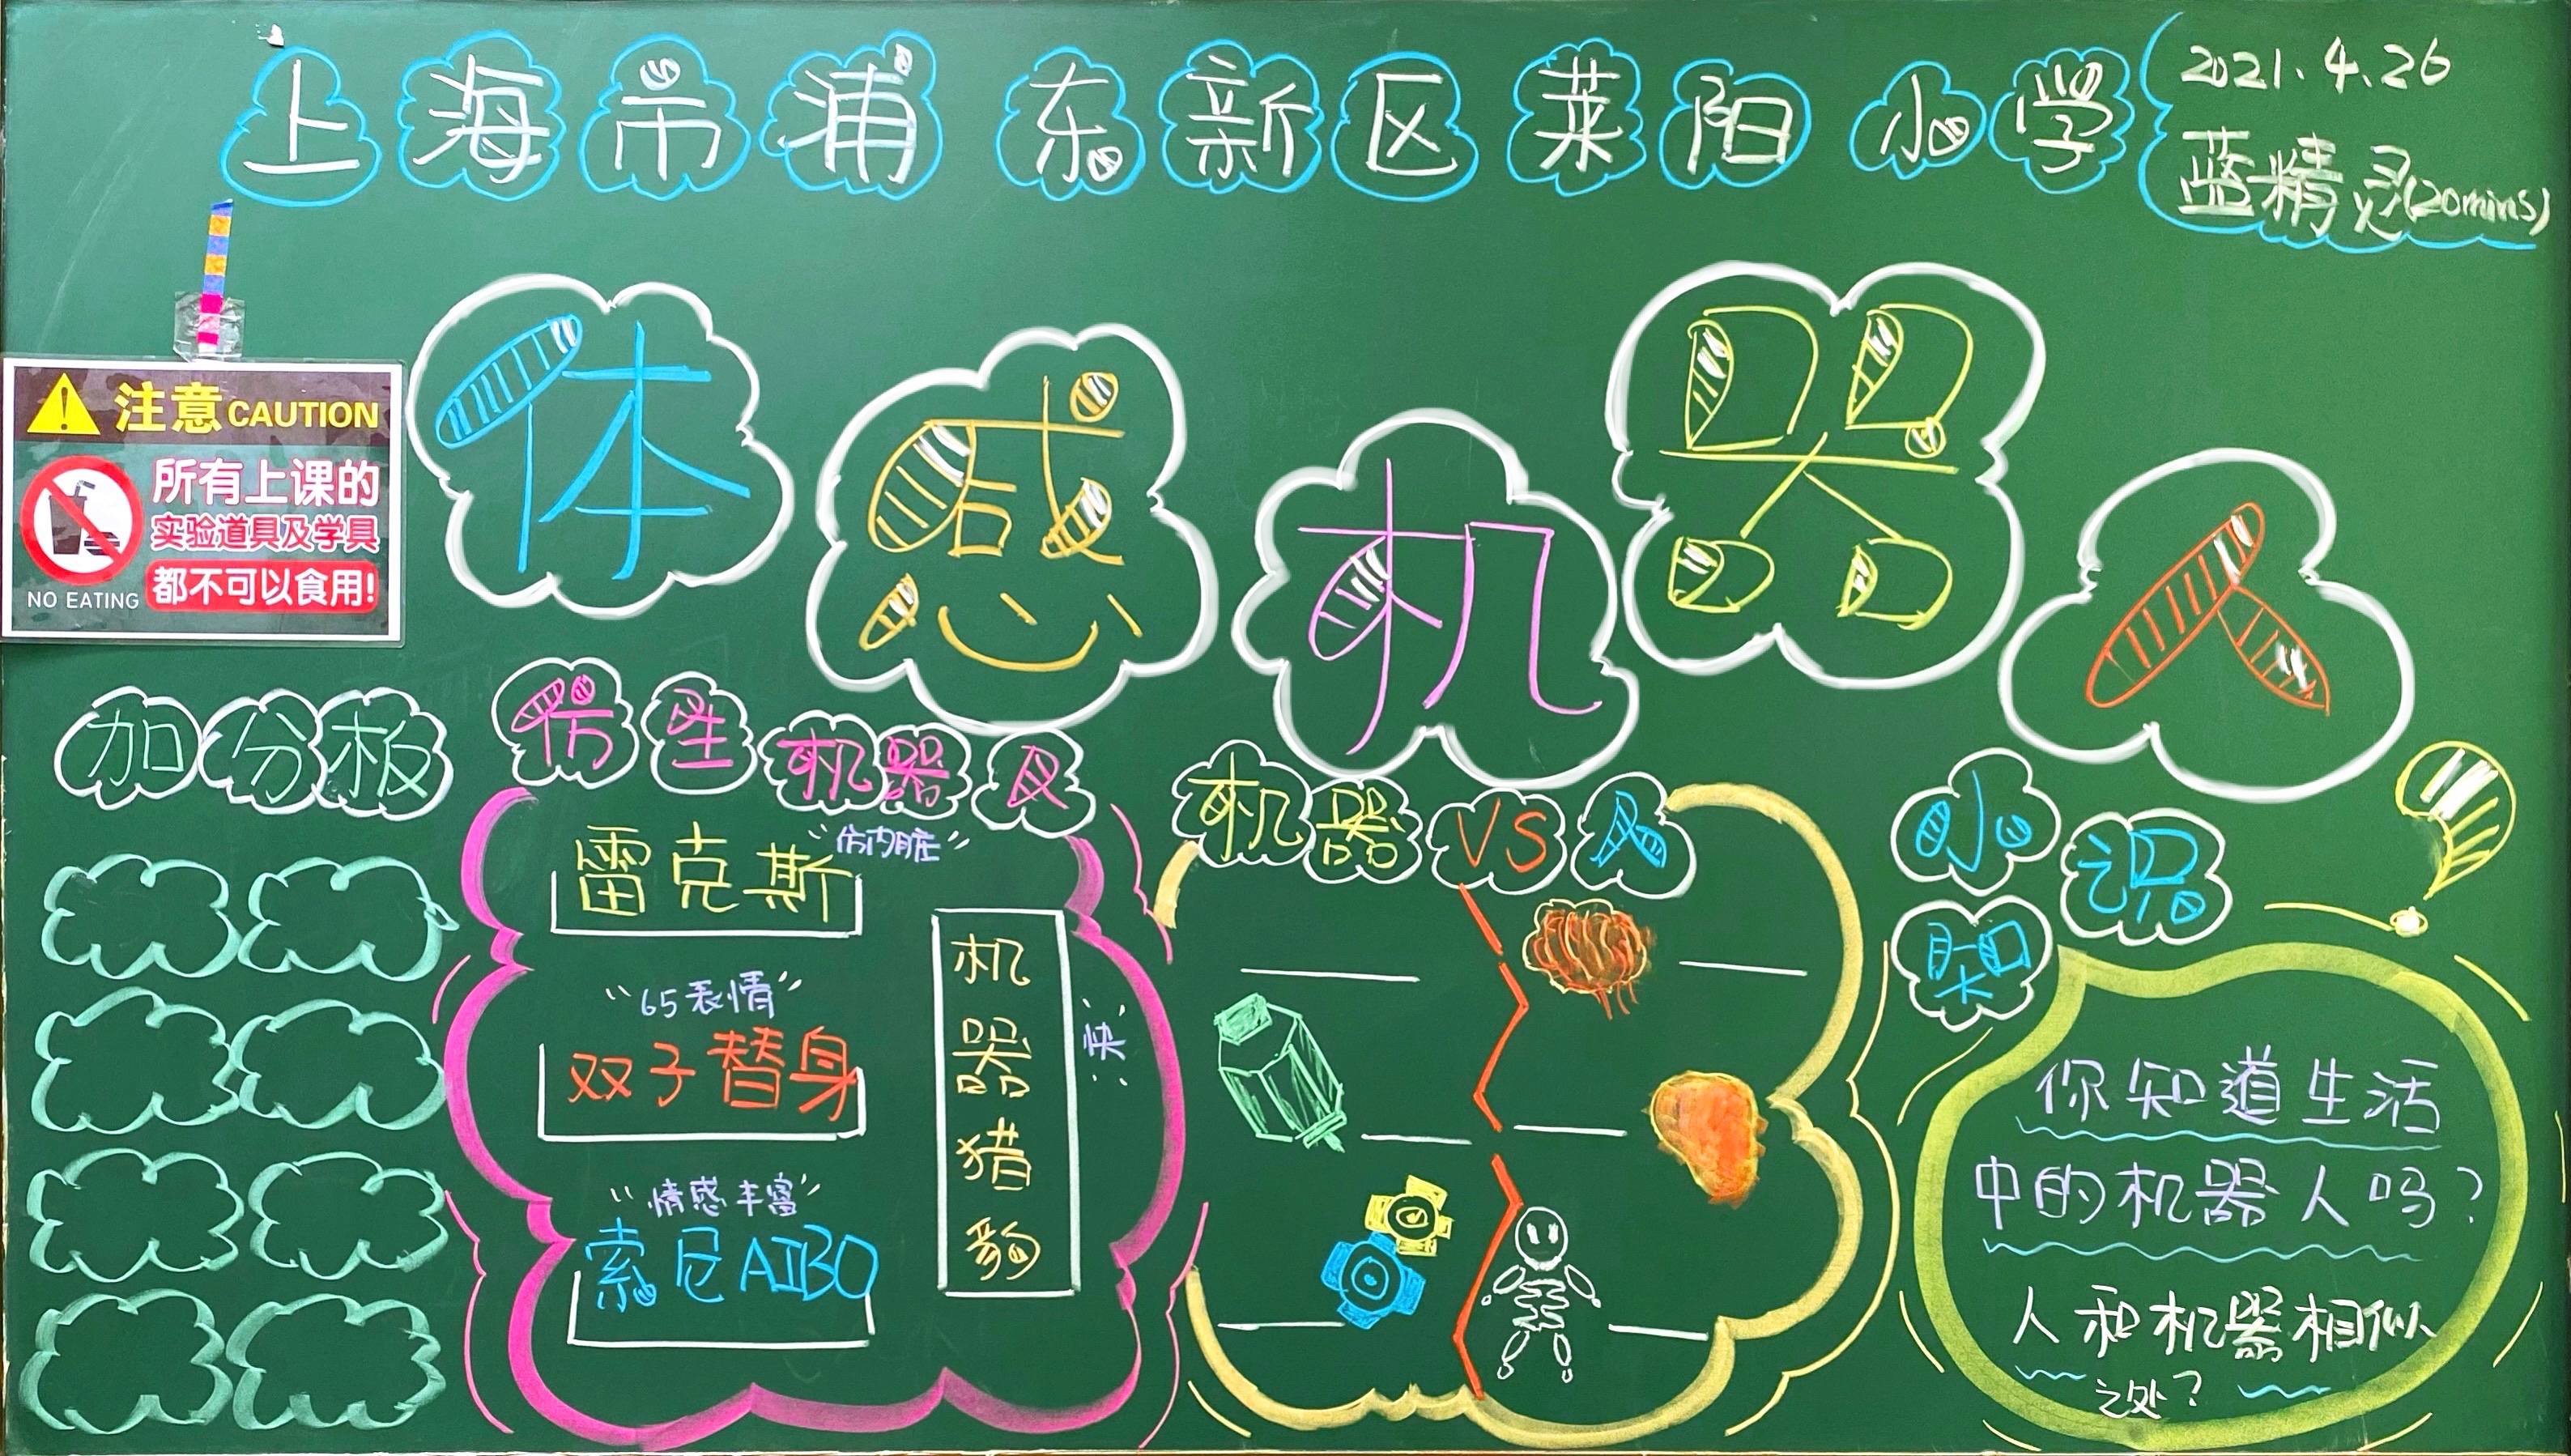 上海市浦东新区莱阳小学
2021.4.26
蓝精灵(20mins)
体感机器人
注意CAUTION
所有上课的
实验道具及学具
都不可以食用!
NO EATING
加分板
仿生机器人
雷克斯
“仿内脏”
“65表情”
双子替身
“情感丰富”
索尼AIBO
机器猎豹
快
机器VS人
小知识
你知道生活
中的机器人吗?
人和机器相似
之处?